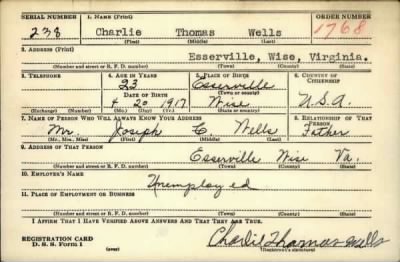 SERIAL NUMBER 1. NAME (Print) ORDER NUMBER
238 Charlie Thomas Wells 1768
(First) (Middle) (Last)
2. ADDRESS (Print)
Esserville, Wise, Virginia.
(Number and street or R. F. D. number) (Town) (County) (State)
3. TELEPHONE 4. AGE IN YEARS 5. PLACE OF BIRTH 6. COUNTRY OF CITIZENSHIP
23 Esserville
DATE OF BIRTH (Town or county)
4 20 1917 Wise U.S.A.
(Exchange) (Number) (Mo.) (Day) (Yr.) (State or country)
7. NAME OF PERSON WHO WILL ALWAYS KNOW YOUR ADDRESS 8. RELATIONSHIP OF THAT PERSON
Mr. Joseph C. Wells Father
(Mr., Mrs., Miss) (First) (Middle) (Last)
9. ADDRESS OF THAT PERSON
Esserville Wise Va.
(Number and street or R. F. D. number) (Town) (County) (State)
10. EMPLOYER'S NAME
Unemployed
11. PLACE OF EMPLOYMENT OR BUSINESS
(Number and street or R. F. D. number) (Town) (County) (State)
I AFFIRM THAT I HAVE VERIFIED ABOVE ANSWERS AND THAT THEY ARE TRUE.
REGISTRATION CARD
D. S. S. Form 1 Charlie Thomas Wells
(over) (Registrant's signature)